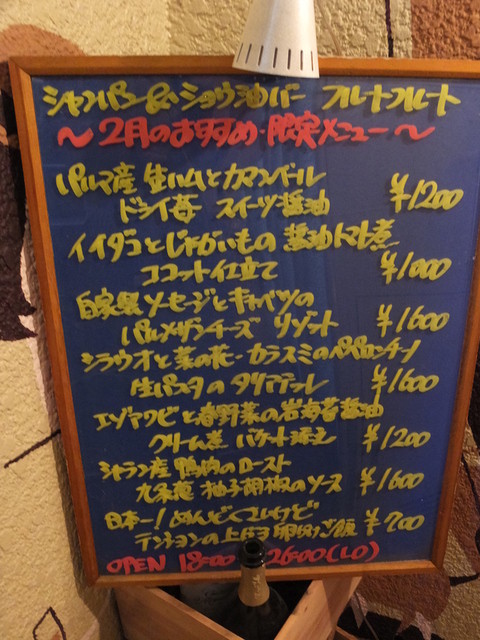 シャンパン&ショウ油バー フルートフルート
〜2月のおすすめ・限定メニュー〜
パルマ産 生ハムとカマンベール
ドライ苺 スイーツ醤油 ¥1200
イイダコとじゃがいもの 醤油トマト煮
ココット仕立て ¥1000
自家製ソーセージとキャベツの
パルメザンチーズ リゾット ¥1600
シラウオと菜の花・カラスミのペペロンチーノ
生パスタのタリアテーレ ¥1600
エゾアワビと春野菜の岩海苔醤油
クリーム煮 バケット添え ¥1200
シャラン産 鴨肉のロースト
九条葱 柚子胡椒のソース ¥1600
日本一!めんどくさいけど
テンションの上がる 卵かけご飯 ¥700
OPEN 18:00 26:00(LO)